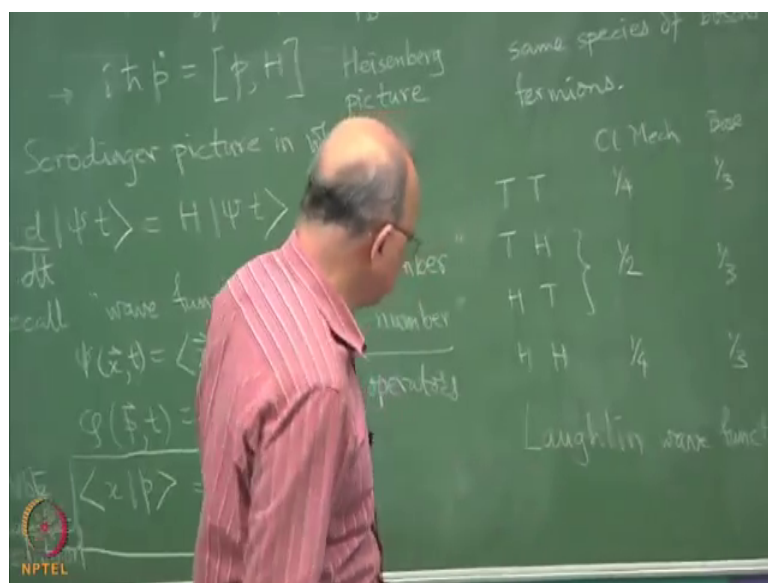 → iħṗ = [p, H] Heisenberg
picture
Scrodinger picture in
d/dt |Ψ t⟩ = H |Ψ t⟩
ecall "wave func
number"
ψ(x⃗,t) = ⟨
operators
φ(p⃗,t) =
⟨x|p⟩ =
same species of bosons
fermions.
Cl Mech Bose
T T 1/4 1/3
T H
H T } 1/2 1/3
H H 1/4 1/3
Laughlin wave funct
NPTEL